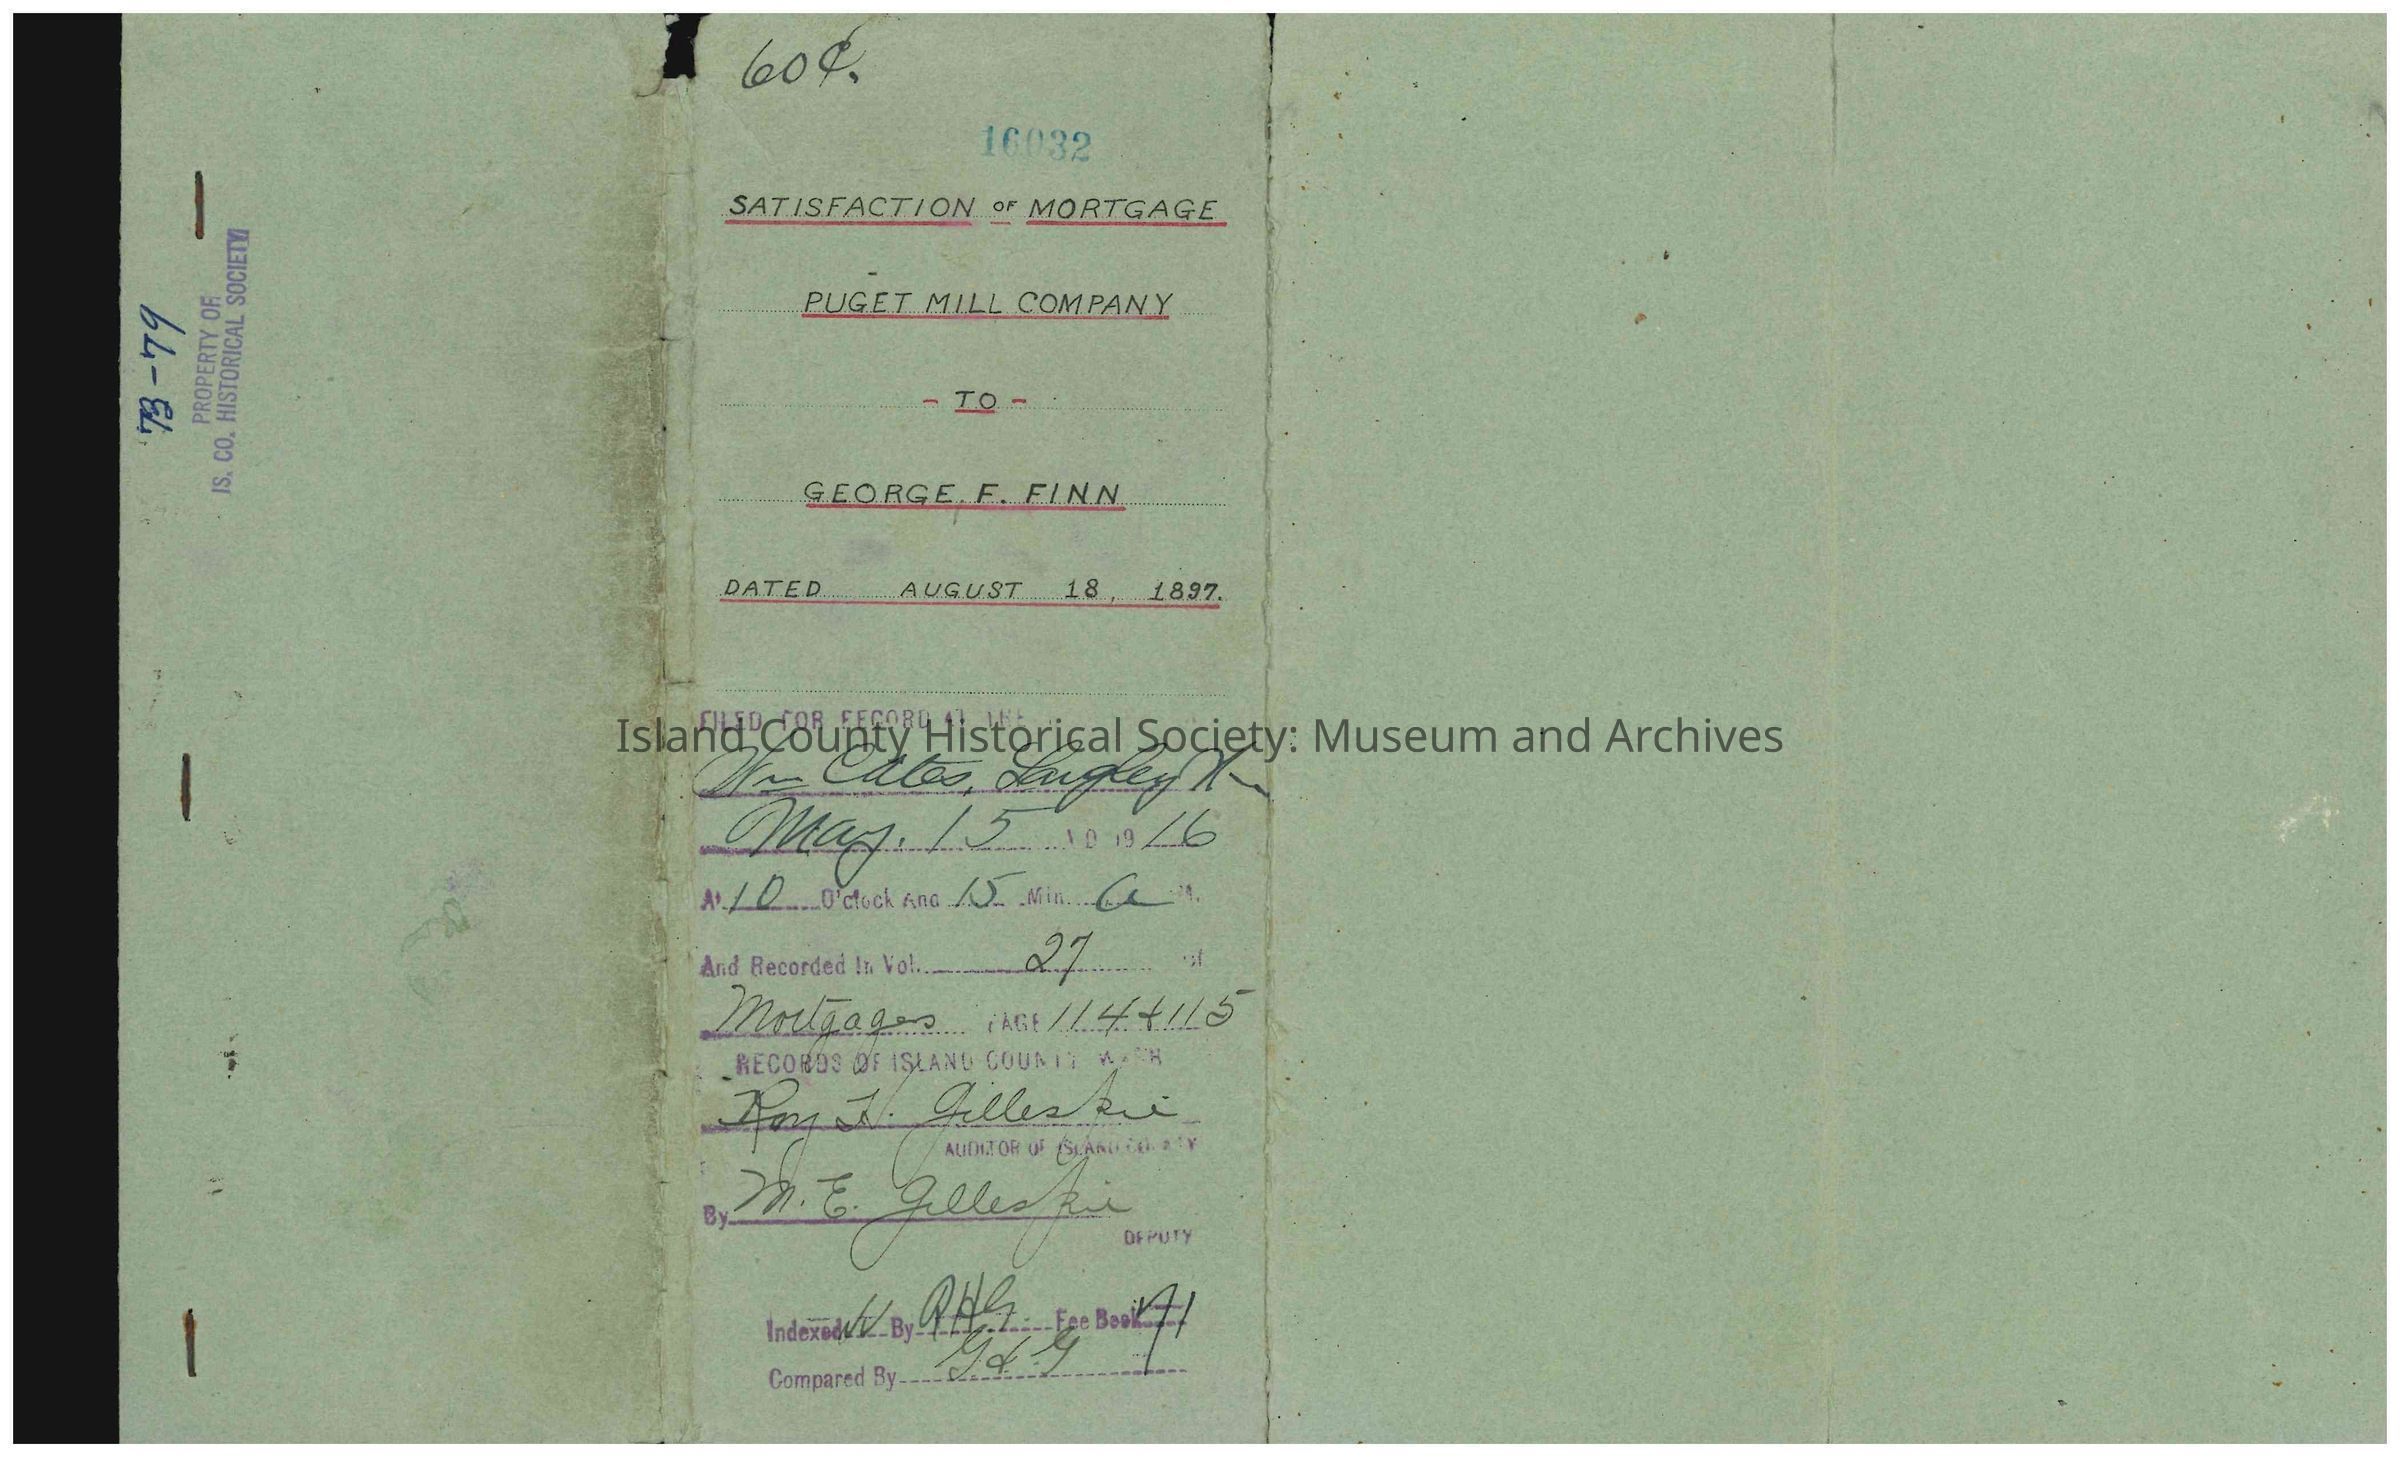 73-79
PROPERTY OF
IS. CO. HISTORICAL SOCIETY
60¢.
16032
SATISFACTION OF MORTGAGE
PUGET MILL COMPANY
- TO -
GEORGE F. FINN
DATED AUGUST 18, 1897.
FILED FOR RECORD AT THE
Island County Historical Society: Museum and Archives
Wm Cates, Langley Wn
May. 15 A D 1916
At 10 O'clock And 15 Min. a M.
And Recorded In Vol. 27 of
Mortgages PAGE 114 & 115
RECORDS OF ISLAND COUNTY WASH
Roy H. Gilleskie
AUDITOR OF ISLAND COUNTY
By M. E. Gilleskie
DEPUTY
Indexed By RHG Fee Book
Compared By